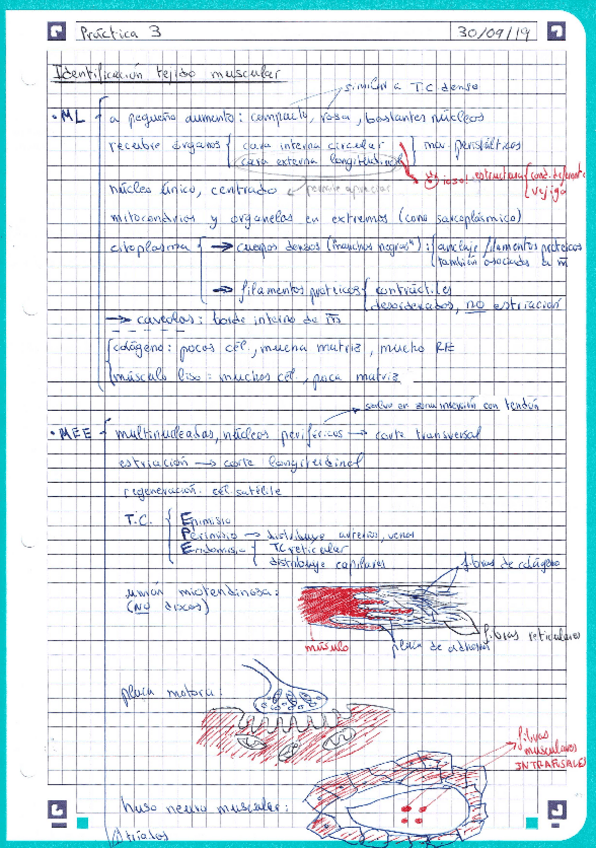 Práctica 3 30/09/19
Identificación tejido muscular
similar a T.C. denso
· ML a pequeño aumento: compacto, rosa, bastantes núcleos
recubre órganos capa interna circular mov. peristálticos
capa externa longitudinal
¡ojo! estructura cond. deferente
vejiga
núcleo único, centrado permite apreciar
mitocondrias y organelos en extremos (cono sarcoplásmico)
citoplasma → cuerpos densos ("manchas negras"): anclaje filamentos proteicos
también asociados a m̄
→ filamentos proteicos contráctiles
desordenados, NO estriación
→ caveolas: borde interno de m̄
colágeno: pocas cél., mucha matriz, mucho RE
músculo liso: muchas cél., poca matriz
salvo en zona inserción con tendón
· MEE multinucleadas, núcleos periféricos → corte transversal
estriación → corte longitudinal
regeneración cél satélite
T.C. Epimisio
Perimisio → distribuye arterias, venas
Endomisio TC reticular
distribuye capilares
unión miotendinosa: fibras de colágeno
(NO discos)
fibras reticulares
músculo placa de adhesión
placa motora:
fibras
musculares
INTRAFUSALES
huso neuro muscular:
tríadas